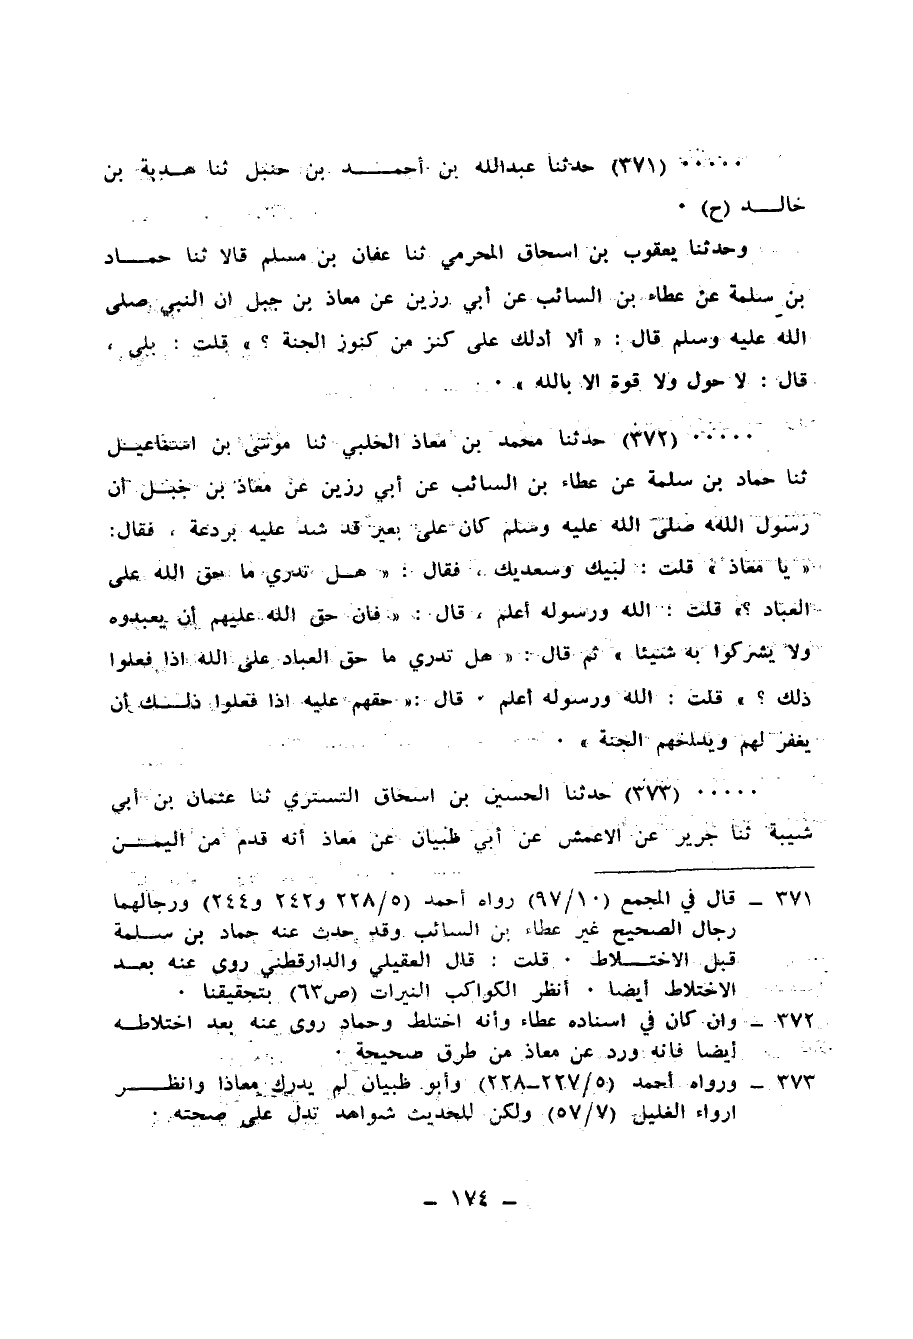 ٠٠٠٠٠ (٣٧١) حدثنا عبدالله بن أحمـــــد بن حنبل ثنا هـدبة بن
خالـــد (ح) ٠
وحدثنا يعقوب بن اسحاق المخرمي ثنا عفان بن مسلم قالا ثنا حمـــاد
بن سلمة عن عطاء بن السائب عن أبي رزين عن معاذ بن جبل ان النبي صلى
الله عليه وسلم قال : « ألا أدلك على كنز من كنوز الجنة ؟ » قلت : بلى ،
قال : لا حول ولا قوة الا بالله » ٠
٠٠٠٠٠ (٣٧٢) حدثنا محمد بن معاذ الحلبي ثنا موسى بن اسماعيـل
ثنا حماد بن سلمة عن عطاء بن السائب عن أبي رزين عن معاذ بن جبـل أن
رسول الله صلى الله عليه وسلم كان على بعير قد شد عليه بردعة ، فقال:
« يا معاذ » قلت : لبيك وسعديك ، فقال : « هـل تدري ما حق الله على
العباد ؟» قلت : الله ورسوله أعلم ، قال : « فان حق الله عليهم أن يعبدوه
ولا يشركوا به شيئا » ثم قال : « هل تدري ما حق العباد على الله اذا فعلوا
ذلك ؟ » قلت : الله ورسوله أعلم ٠ قال :« حقهم عليه اذا فعلوا ذلـــك أن
يغفر لهم ويدخلهم الجنة » ٠
٠٠٠٠٠ (٣٧٣) حدثنا الحسين بن اسحاق التستري ثنا عثمان بن أبي
شيبة ثنا جرير عن الاعمش عن أبي ظبيان عن معاذ أنه قدم من اليمـــن
٣٧١ ــ قال في المجمع (٩٧/١٠) رواه أحمد (٢٢٨/٥ و٢٤٢ و٢٤٤) ورجالهما
رجال الصحيح غير عطاء بن السائب وقد حدث عنه حماد بن سـلمة
قبل الاختـــلاط ٠ قلت : قال العقيلي والدارقطني روى عنه بعـد
الاختلاط أيضا ٠ أنظر الكواكب النيرات (ص٦٣) بتحقيقنا ٠
٣٧٢ ــ وان كان في اسناده عطاء وأنه اختلط وحماد روى عنه بعد اختلاطـه
أيضا فانه ورد عن معاذ من طرق صحيحة ٠
٣٧٣ ــ ورواه أحمد (٢٢٧/٥-٢٢٨) وأبو ظبيان لم يدرك معاذا وانظـــر
ارواء الغليل (٥٧/٧) ولكن للحديث شواهد تدل على صحته ٠
ــ ١٧٤ ــ